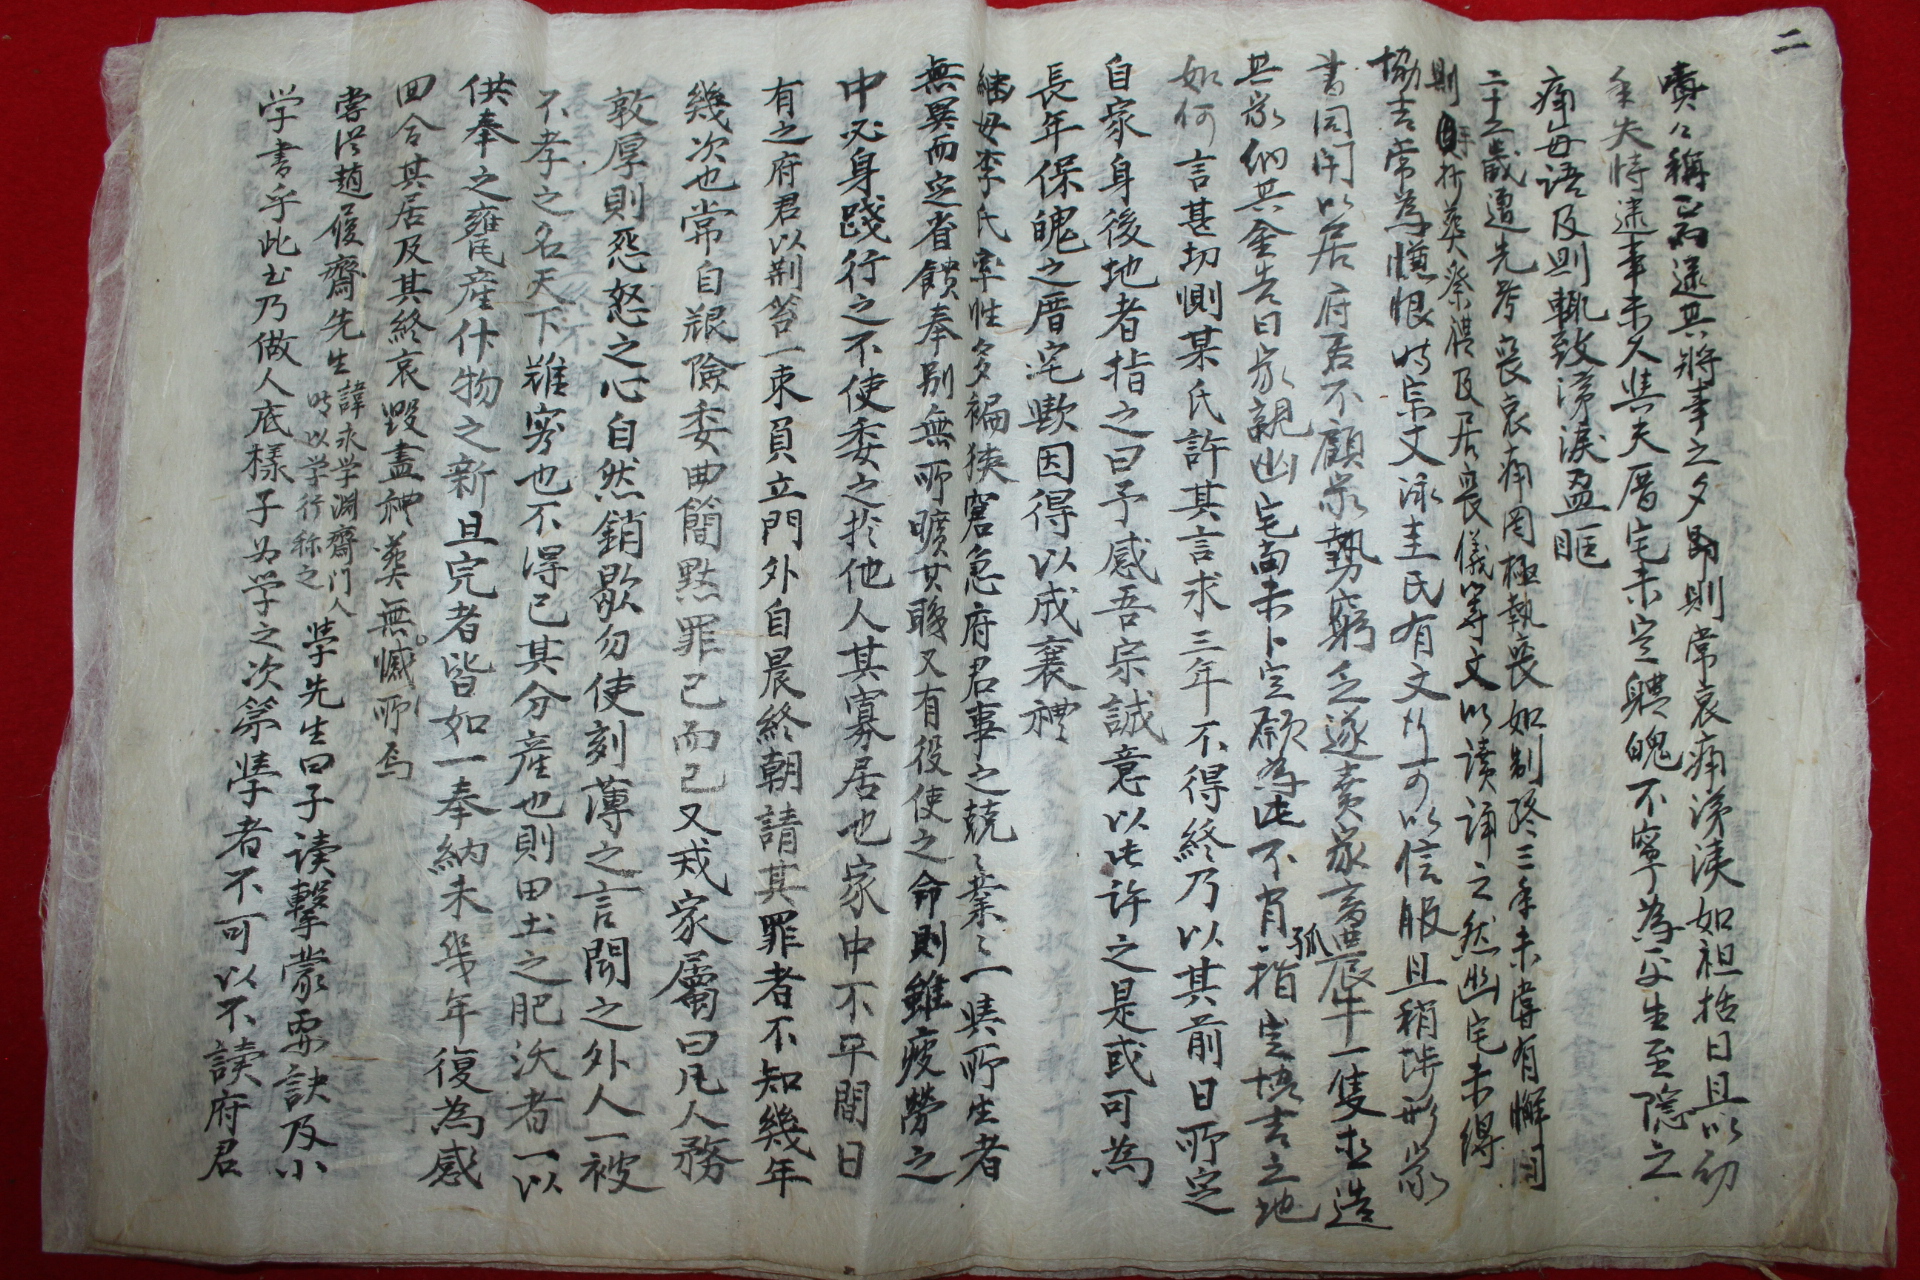 二
嘖々稱焉而逮其將事之夕昂則常哀痛涕洟如袒括日且以初
年失恃逮事未久與夫厝宅未定體魄不寧為父生至隱之
痛每語及則輒致涕淚盈眶
二十二歲遭先考喪哀痛罔極執喪如制終三年未嘗有懈因
則自折葬祭禮及居喪儀等文以讀誦之然幽宅未得
協吉常為憎恨時宗丈泳圭氏有文行可以信服且稍涉形家
書同閈以居府君不顧家勢窮乏遂賣家畜農牛一隻求造
其家納其金告曰家親幽宅尚未卜定願為此不肖孤指定協吉之地
如何言甚切惻某氏許其言求三年不得終乃以其前日所定
自家身後地者指之曰予感吾宗誠意以此許之是或可為
長年保魄之厝宅歟因得以成襄禮
繼母李氏率性多褊狹窘急府君事之兢々業々一與所生者
無異而定省饋奉別無所曠其職又有役使之命則雖疲勞之
中必身踐行之不使委之於他人其寡居也家中不平間日
有之府君以荊笞一束負立門外自晨終朝請其罪者不知幾年
幾次也常自艱險委曲簡默罪己而已又戒家屬曰凡人務
敦厚則怨怒之心自然銷歇勿使刻薄之言聞之外人一被
不孝之名天下難容也不得已其分產也則田土之肥沃者一以
供奉之甕產什物之新且完者皆如一奉納未幾年復為感
回合其居及其終哀毀盡禮葬無憾所焉
嘗從趙履齋先生諱永學淵齋門人時以學行称之學先生曰子读擊蒙要訣及小
学書乎此書乃做人底樣子为学之次第學者不可以不讀府君